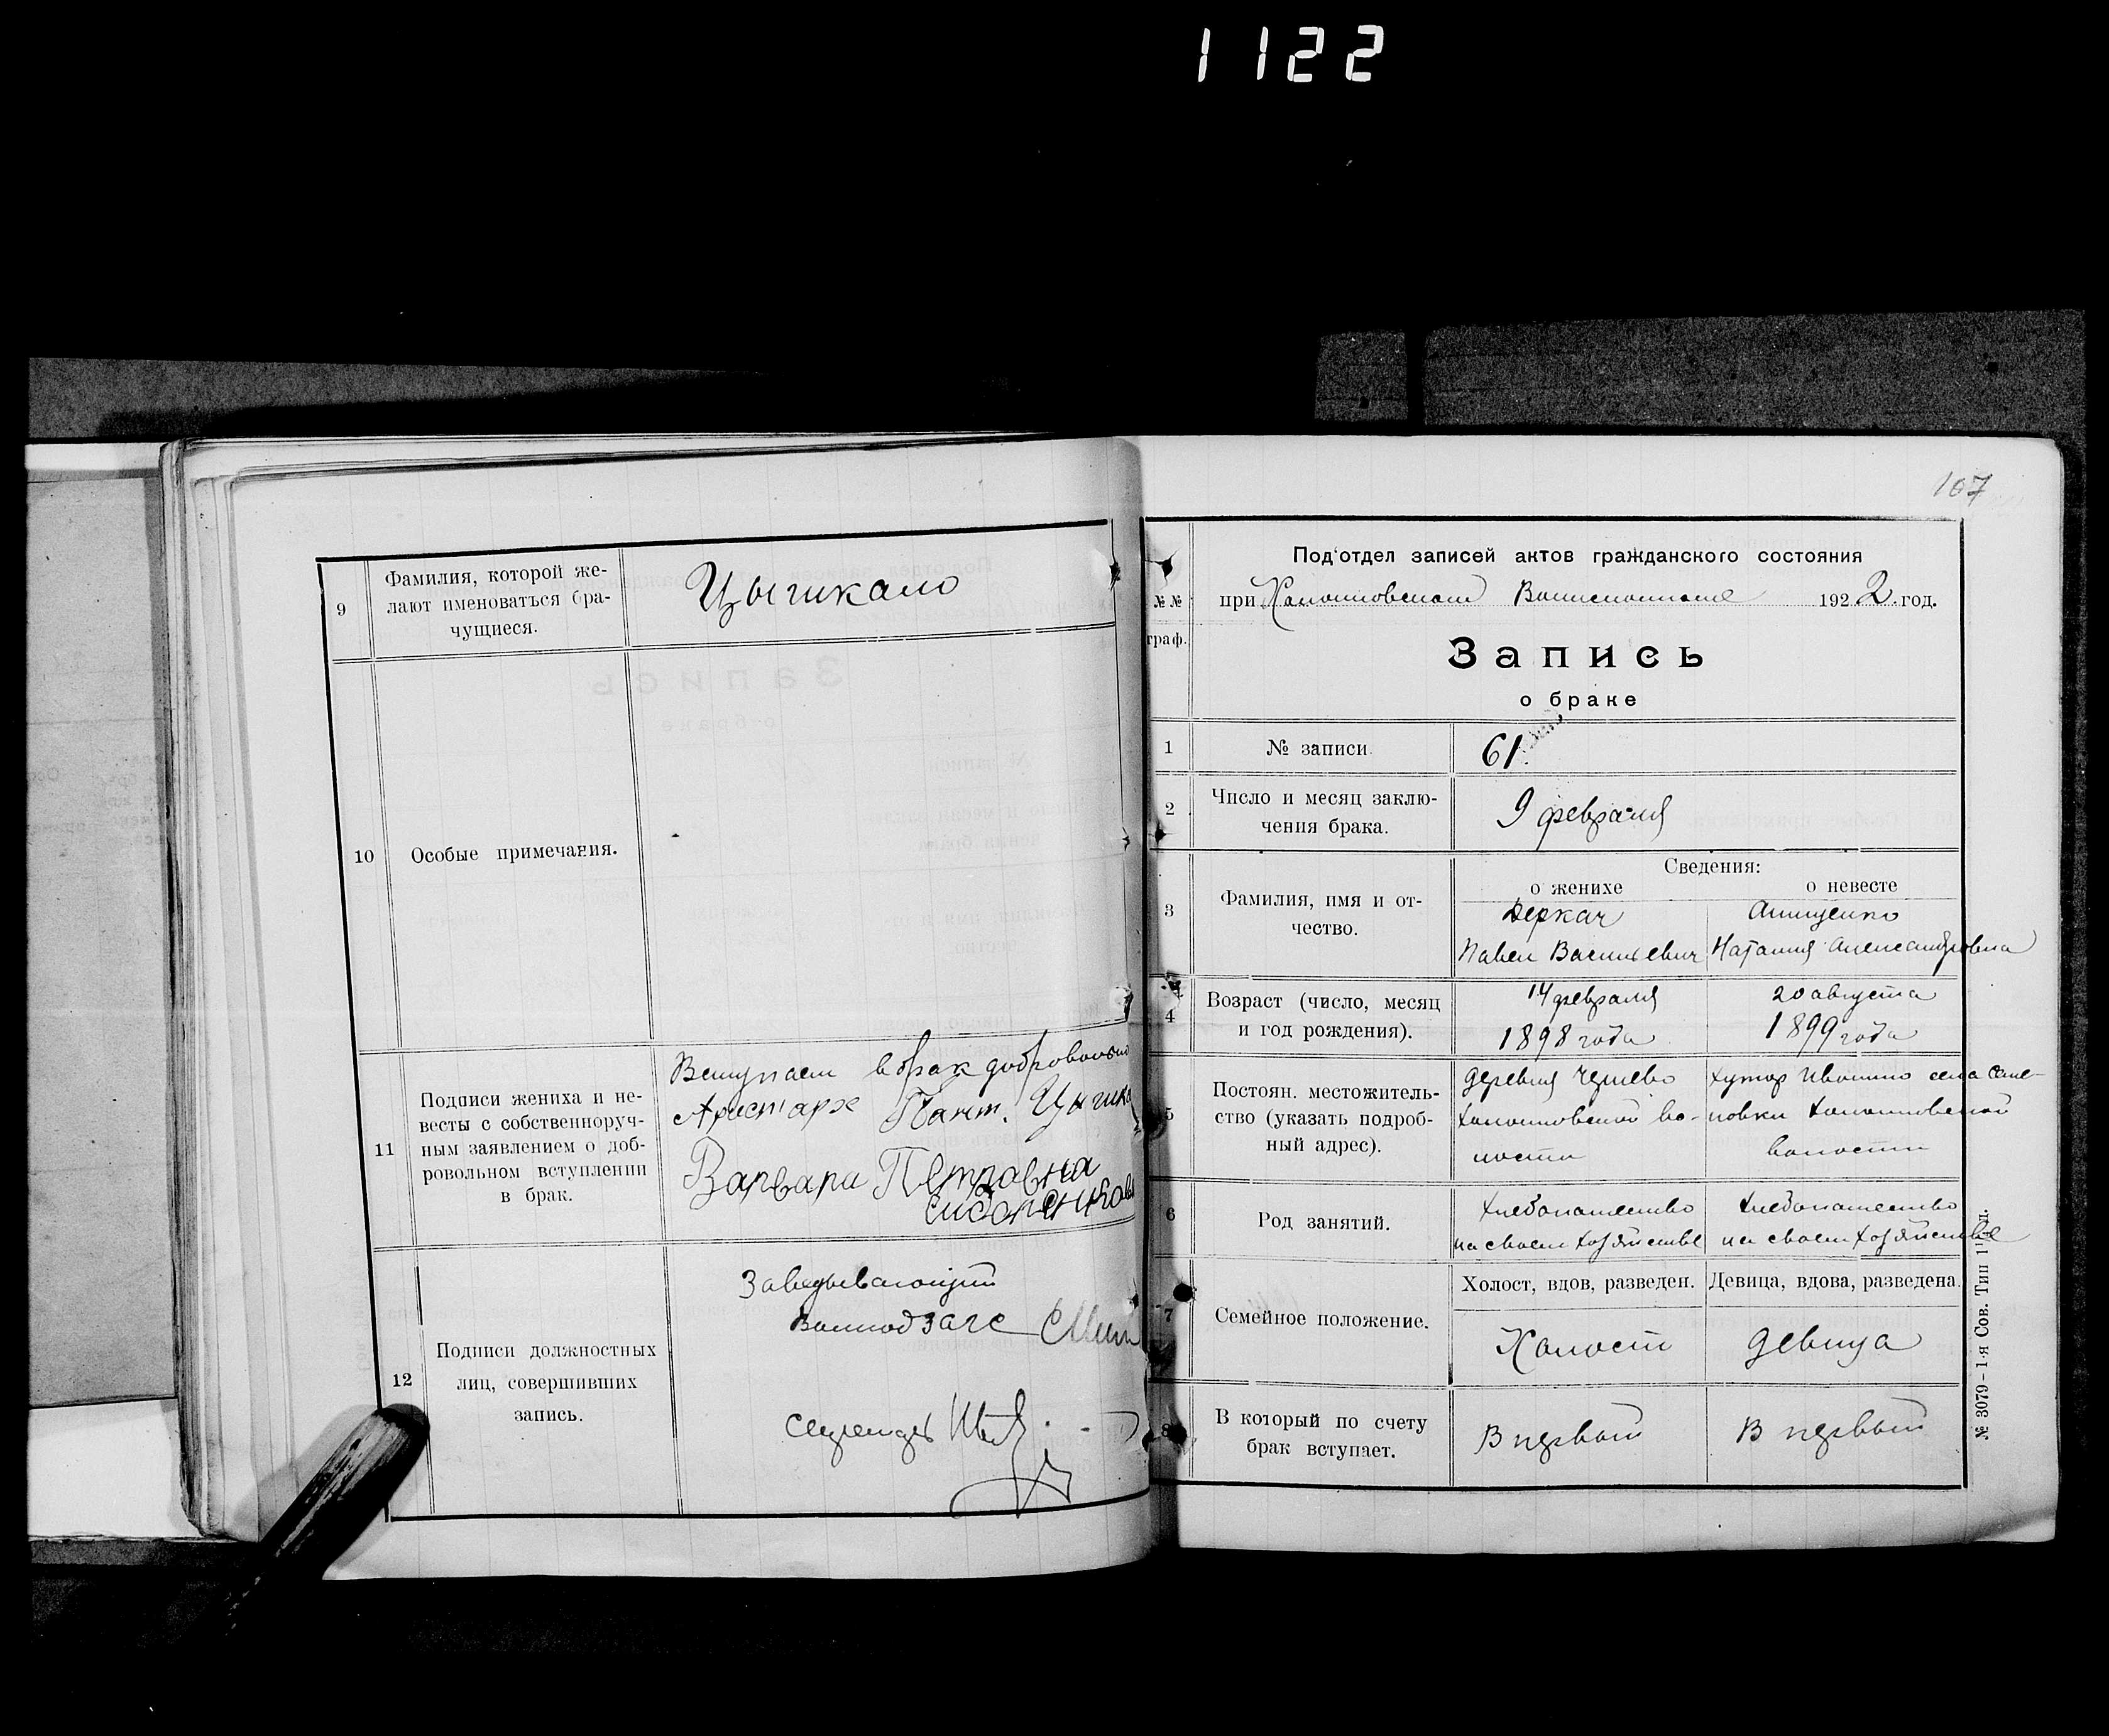 1122
9
Фамилия, которой же-
лают именоваться бра-
чущиеся.
Цыгикало
10
Особые примечания.
11
Подписи жениха и не-
весты с собственноруч-
ным заявлением о доб-
ровольном вступлении
в брак.
Вступаем в брак добровольно
Аристарх Пант. Цыгика
Варвара Петравна
Сидоренкова
12
Подписи должностных
лиц, совершивших
запись.
Заведывающий
Волподзагс
Секретарь
107
№№
граф.
Под'отдел записей актов гражданского состояния
при Хапошовском Волисполкоме 1922 год.
Запись
о браке
1
№ записи
61.
2
Число и месяц заклю-
чения брака.
9 февраля
3
Фамилия, имя и от-
чество.
Сведения:
о женихе
о невесте
Деркач
Павел Васильевич
Анищенко
Наталия Александровна
4
Возраст (число, месяц
и год рождения).
14 февраля
1898 года
20 августа
1899 года
5
Постоян. местожитель-
ство (указать подроб-
ный адрес).
деревня
во-
лости
хутор села Семе-
новки
волости
6
Род занятий.
Хлебопашество
на своем хозяйстве
Хлебопашество
на своем хозяйстве
7
Семейное положение.
Холост, вдов, разведен.
Девица, вдова, разведена.
Холост
девица
8
В который по счету
брак вступает.
В первый
В первый
№ 3079 – 1-я Сов. Тип